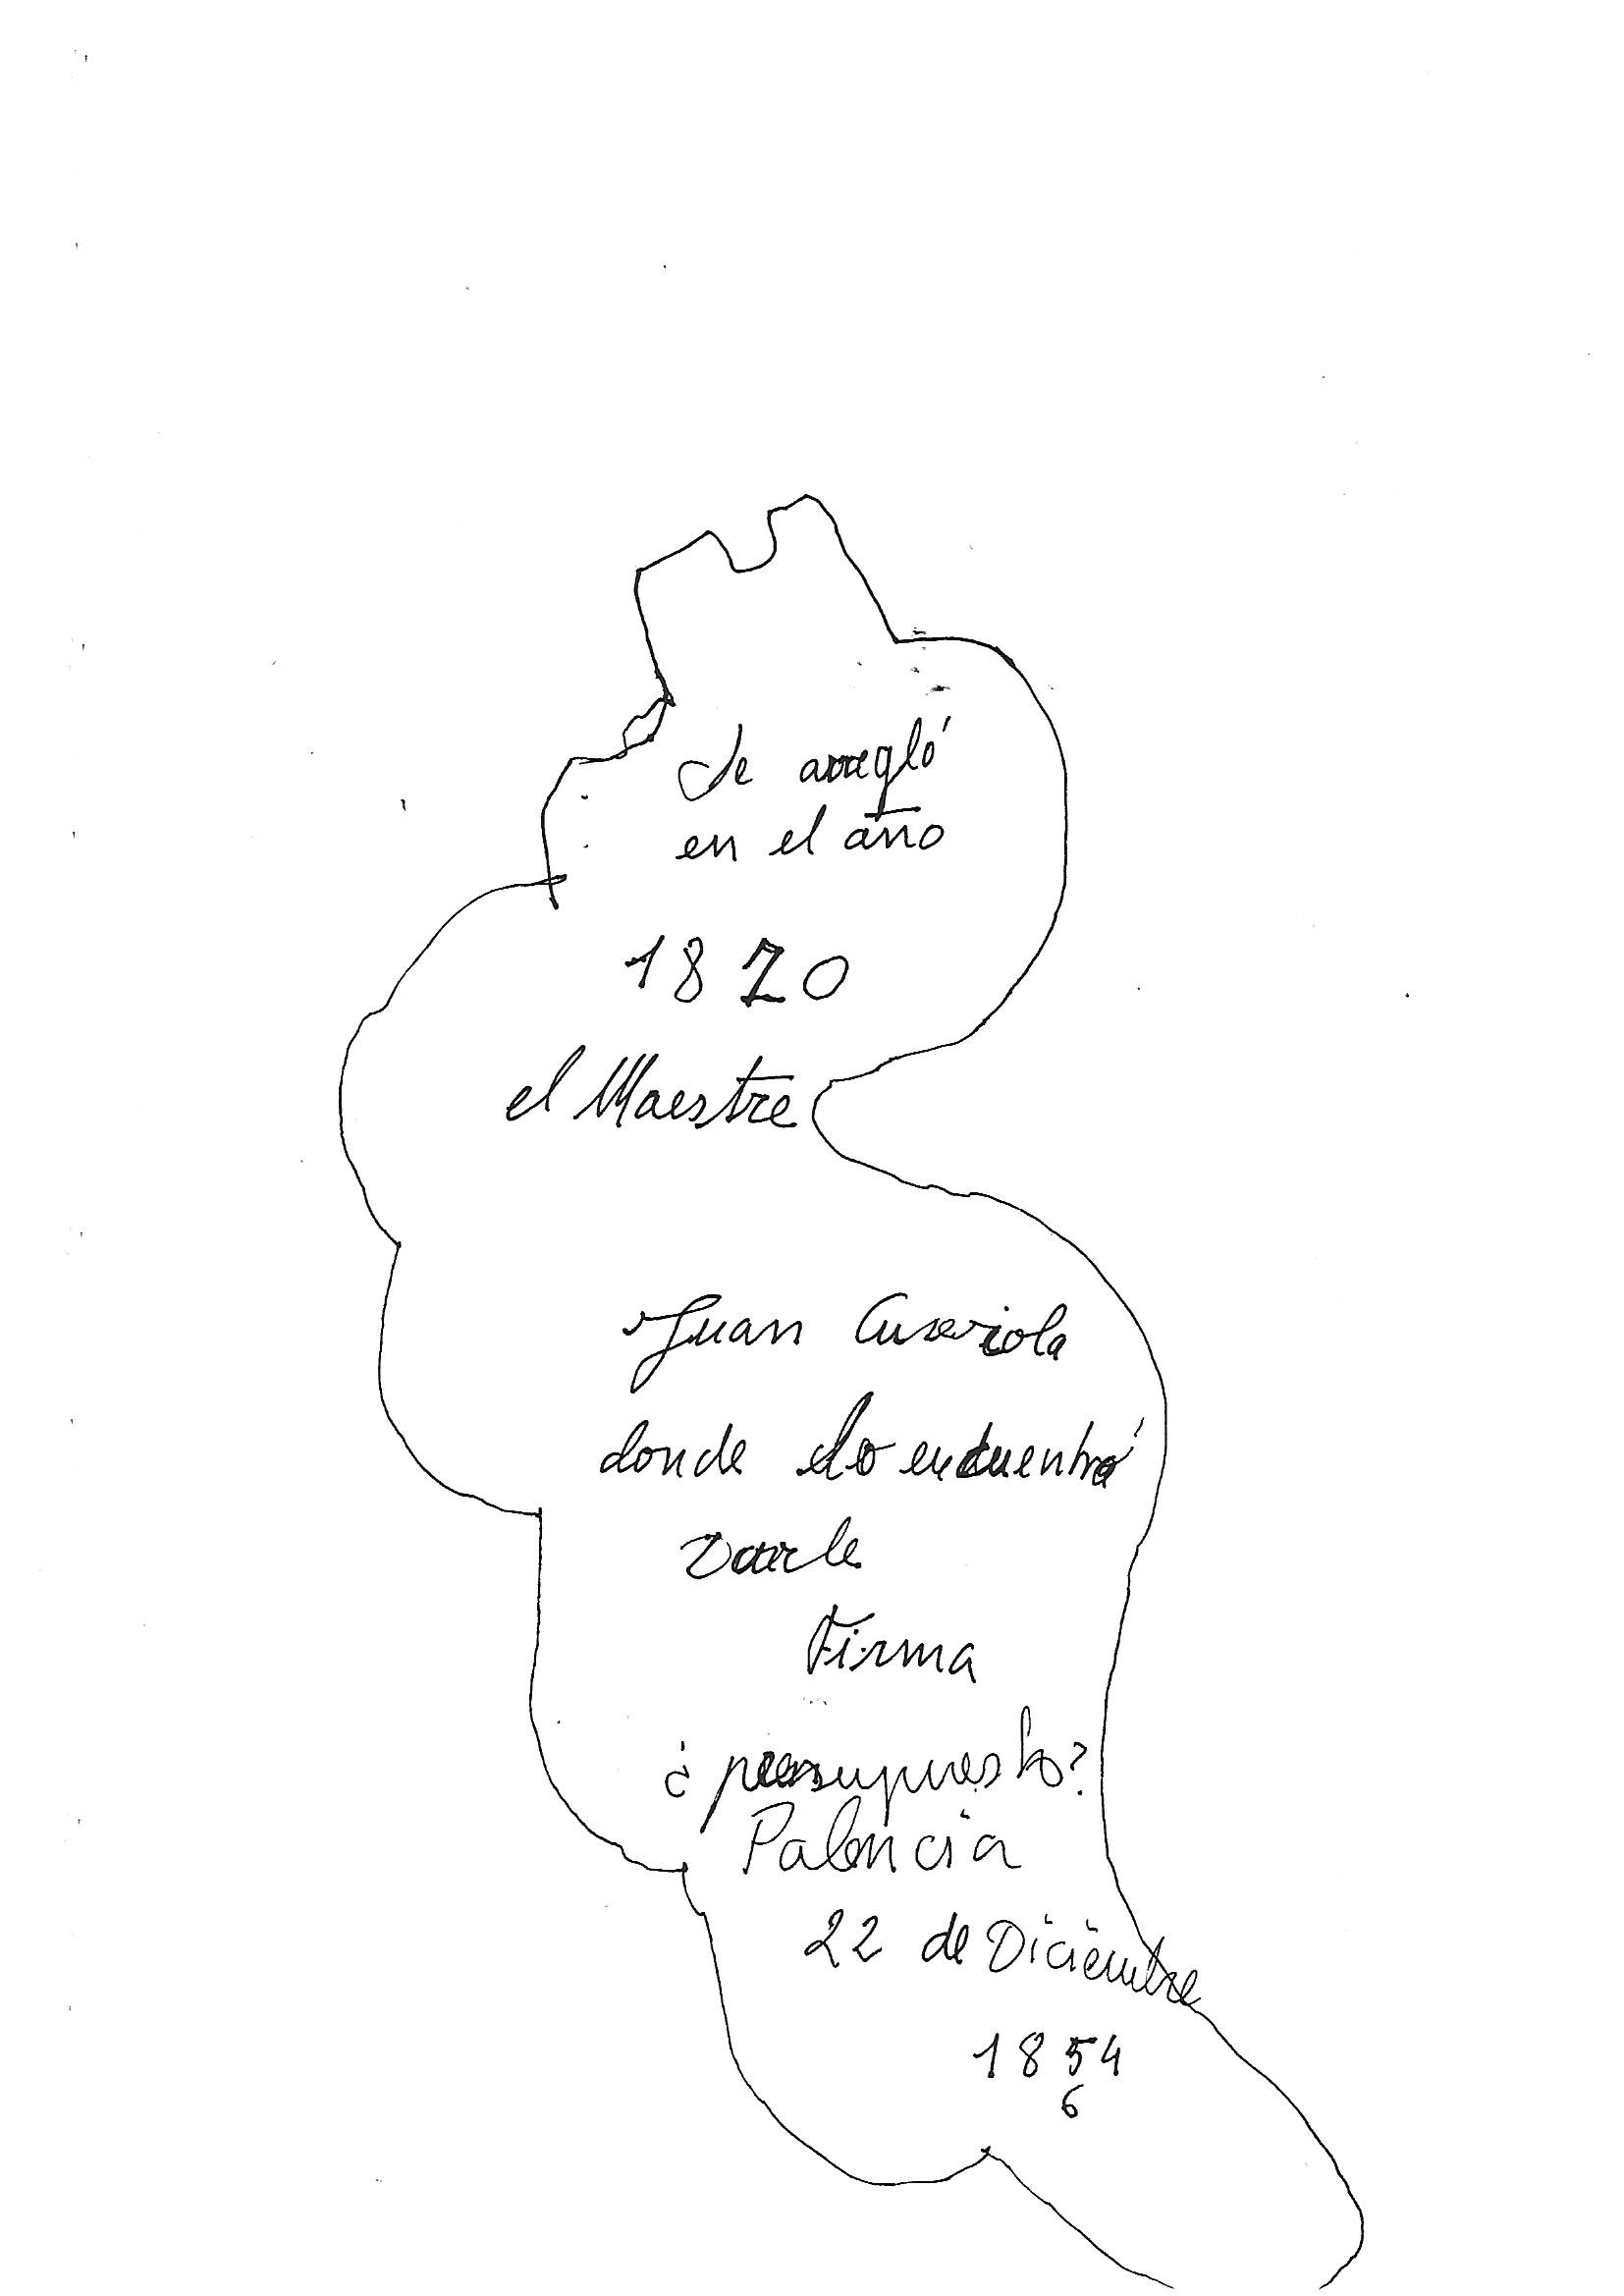 Se arregló
en el año
1870
el Maestre
Juan
donde lo encuentró
Firma
¿presupuesto?
Palencia
22 de Diciembre
1854
6